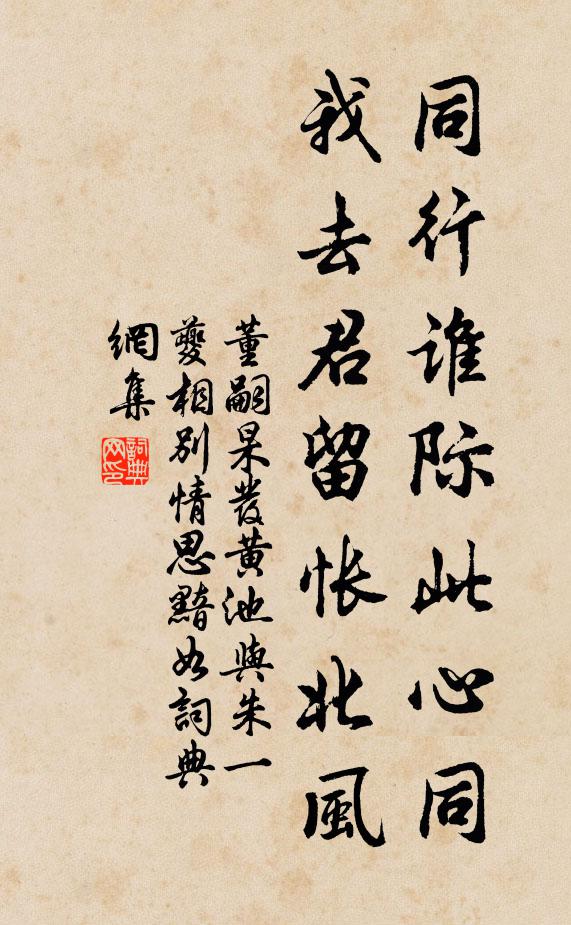 同行谁际此心同
我去君留怅北風
董嗣杲發黄池與朱一
夔相別情思黯如詞典
網集
詞典
网印